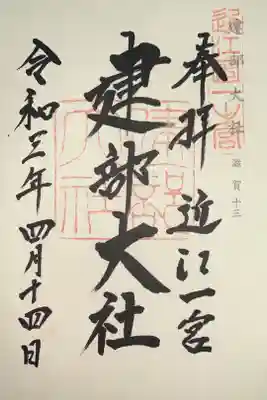 建部大社 滋賀十三
奉拝 近江一宮
建部大社
令和三年 四月十四日